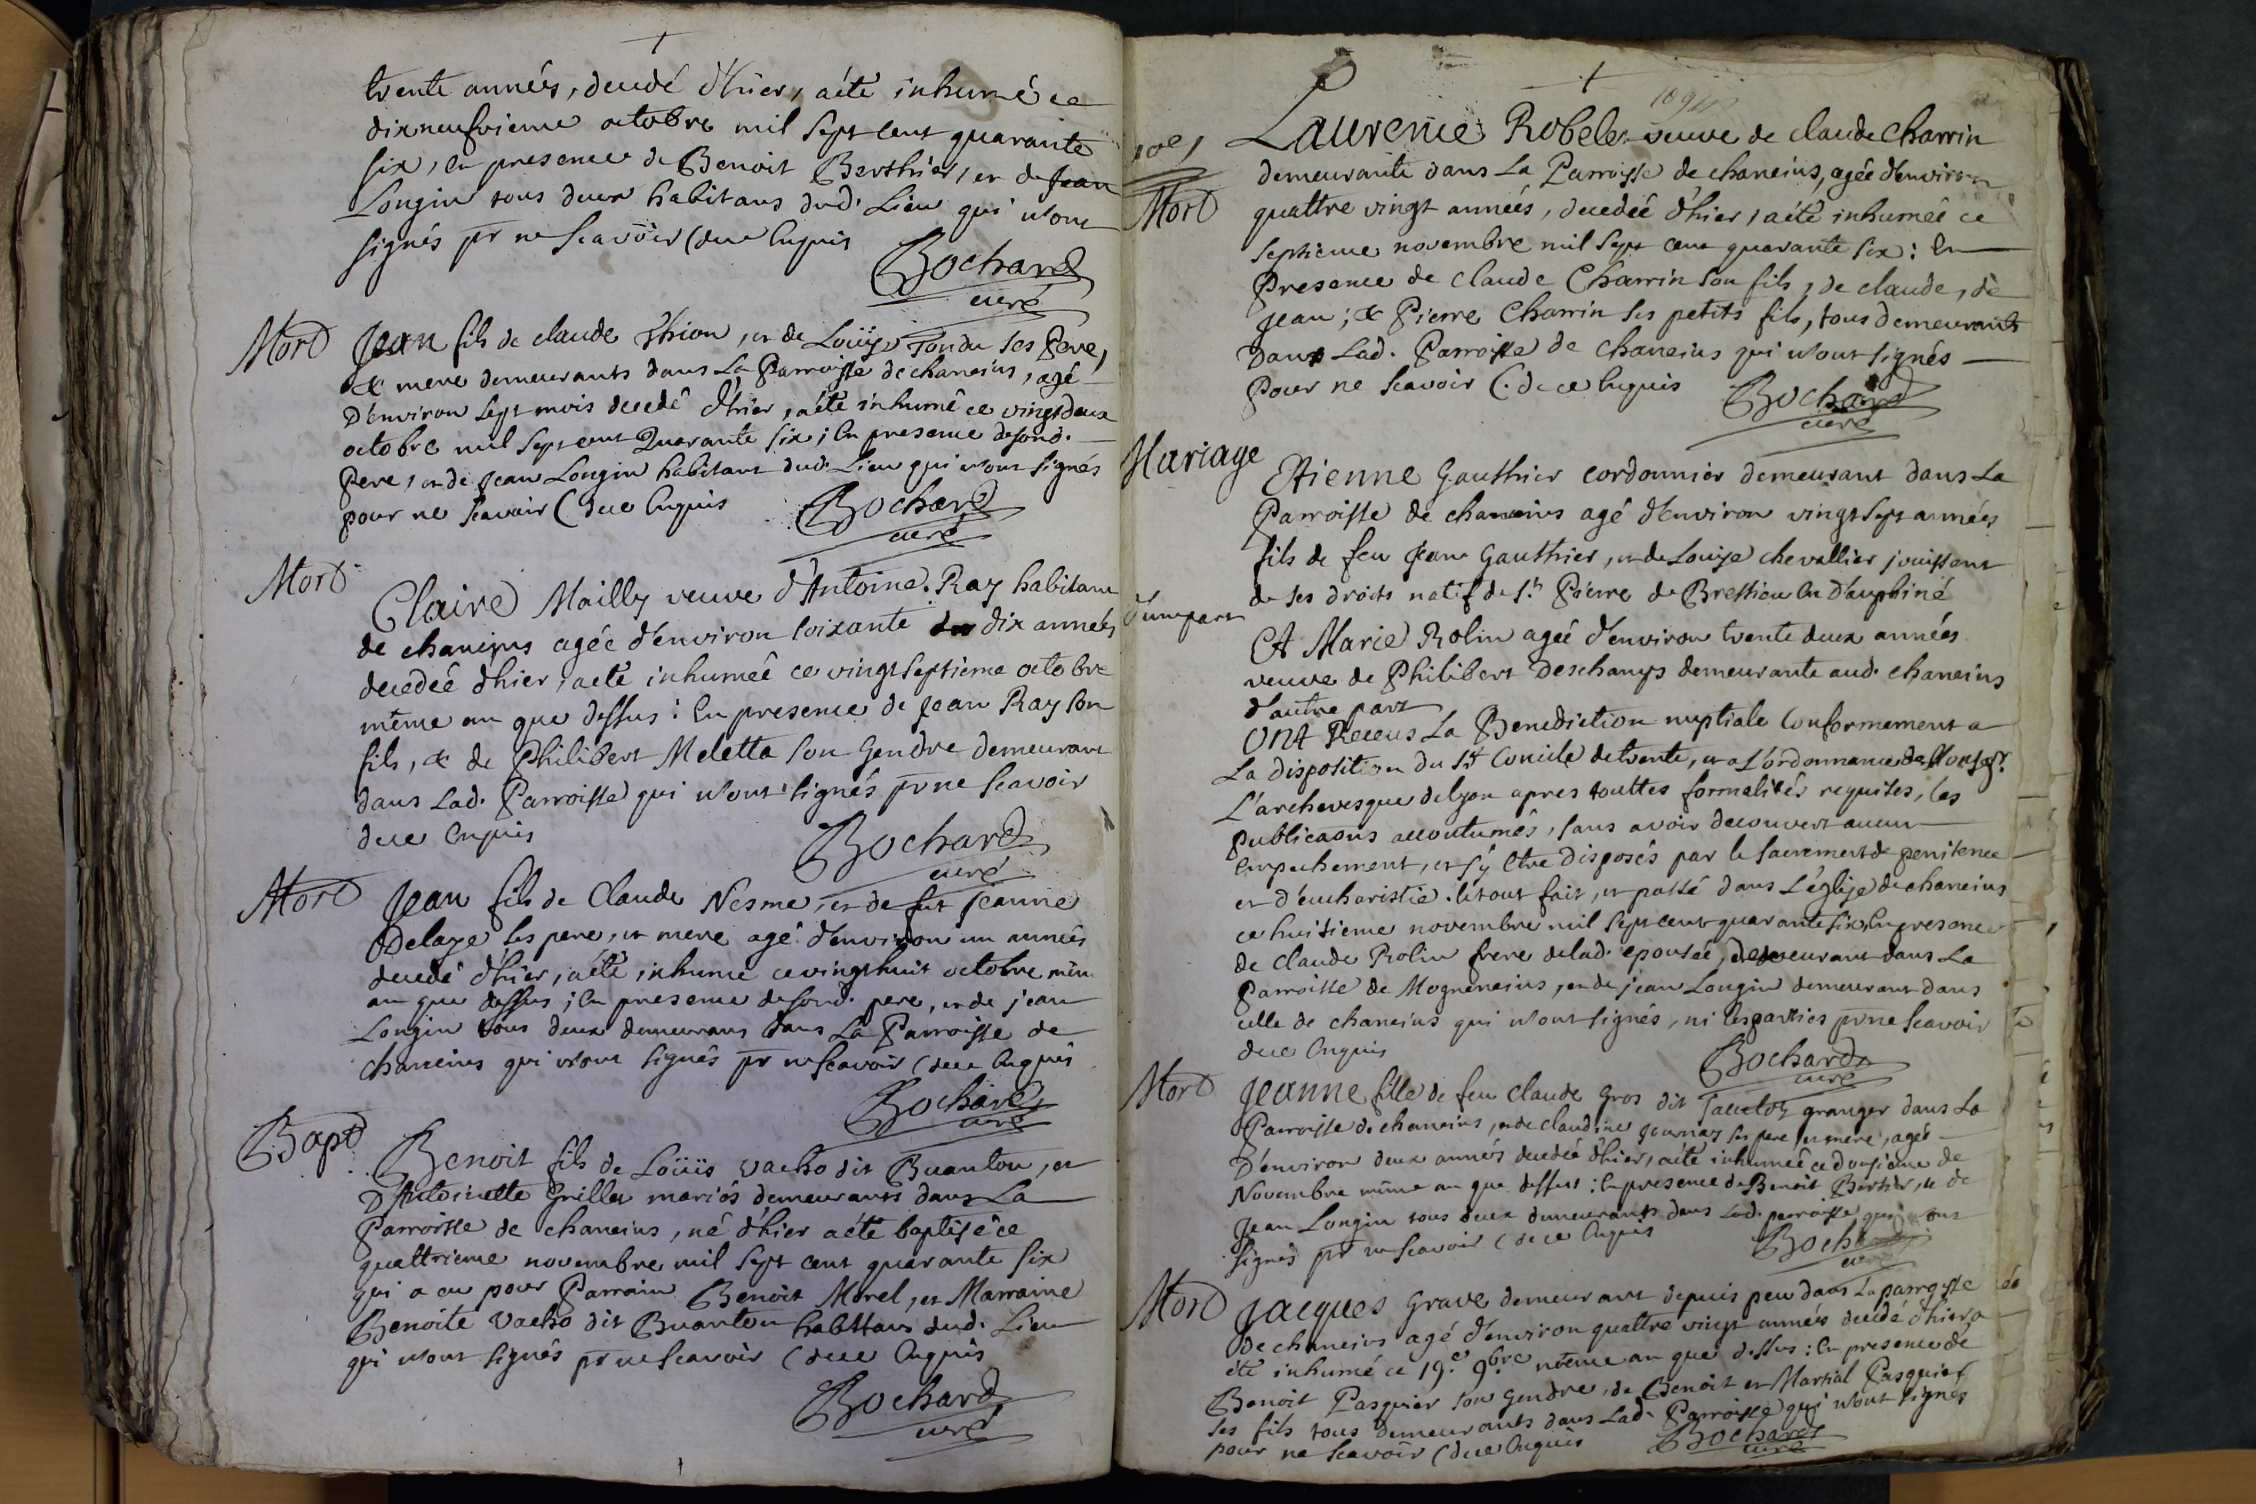 trente années, decedé d'hier, a été inhumé ce
dixneufvieme octobre mil sept cent quarante
six, en presence de Benoit Berthier, et de Jean
Longin tous deux habitans dud. Lieu qui n'ont
signés pr ne scavoir (de ce enquis
Bochard
curé
Mort
Jean fils de claude Thion, et de Loüise Tondu ses Pere,
& mere demeurants dans La Parroisse de chaneins, agé
D'environ sept mois decedé d'hier, a été inhumé ce vingtdeux
octobre mil sept cent Quarante six; En presence desond.
Pere, et de Jean Longin habitant dud. Lieu qui n'ont signés
pour ne scavoir (de ce enquis
Bochard
curé
Mort
Claire Mailly veuve d'Antoine Ray habitant
de chaneins agée d'environ soixante dix années
decedéé d'hier, a eté inhumeé ce vingtseptieme octobre
même an que dessus: En presence de Jean Ray son
fils, & de Philibert Meletta son Gendre demeurant
dans Lad. Parroisse qui n'ont signés pr ne scavoir
de ce enquis
Bochard
curé
Mort
Jean fils de Claude Nesme, et de fut Jeanne
Delaye ses pere, et mere agé d'environ un anneés
decedé d'hier, a été inhume ce vingthuit octobre mêm
an que dessus; En presence desond. pere, et de jean
Longin tous deux demeurans dans La Parroisse de
chaneins qui n'ont signés pr ne scavoir (de ce enquis
Bochard
curé
Bapt
Benoit fils de Loüis vacho dit Buanton, et
D'Antoinette Grillet mariés demeurants dans La
Parroisse de chaneins, né d'hier a été baptisé ce
quattrieme novembre mil sept cent quarante six
qui a eu pour Parrain Benoit Morel, et Marraine
Benoite Vacho dit Buanton habittans dud. Lieu
qui n'ont signés pr ne scavoir (de ce enquis
Bochard
curé
Mort
Laurence Robelet veuve de claude Charrin
demeurante dans La Parroisse de chaneins, agée d'environ
quattre vingt anneés, decedéé d'hier, a été inhumeé ce
septieme novembre mil sept cent quarante six: En
Presence de claude Charrin son fils, de claude, de
Jean; & Pierre Charrin ses petits fils, tous demeurants
Dans Lad. Parroisse de chaneins qui n'ont signés
Pour ne scavoir (. de ce enquis
Bochard
curé
Mariage
Etienne Gauthier cordonnier demeurant dans La
Parroisse de chaneins agé d'environ vingtsept années
fils de feu Jean Gauthier, et de Louise chevallier jouissant
de ses droits natif de St. Pierre de Bressieu en Dauphiné
d'une part
Et Marie Rolin agéé d'environ trente deux années
veuve de Philibert Deschamps demeurante aud. chaneins
d'autre part
ONt Receus La Benediction nuptiale conformement a
La disposition du St Concile de trente, et a L'ordonnance de Monsgr.
L'archevesque de Lyon apres touttes formalités requises, les
Publicaons accoutumés, sans avoir decouvert aucun
Empechement, et s'y être disposés par le sacrement de penitence
et d'eucharistie. Le tout fait, et passé dans L'église de chaneins
ce huitieme novembre mil sept cent quarante six, en presence
de claude Rolin frere de lad. epouséé, demeurant dans La
Parroisse de Mogneneins, et de jean Longin demeurant dans
celle de chaneins qui n'ont signés, ni les parties pr ne scavoir
de ce enquis
Bochard
curé
Mort
Jeanne fille de feu claude Gros dit granger dans La
Parroisse de chaneins, et de claudine ses pere, et mere, agée
D'environ deux années decedéé d'hier, a été inhumeé ce dousieme de
Novembre même an que dessus: en presence de Benoit Berthier, et de
Jean Longin tous deux demeurants dans Lad. parroisse qui n'ont
signés pr ne scavoir (de ce enquis
Bochard
curé
Mort
Jacques Grave demeurant depuis peu dans La parroisse
de chaneins agé d'environ quattre vingt années decedé d'hier a
été inhumé ce 19.e 9bre même an que dessus: en presence de
Benoit Pasquier son gendre, de Benoit et Martial Pasquier
ses fils tous demeurants dans Lad. Parroisse qui n'ont signés
pour ne scavoir (de ce enquis
Bochard
curé